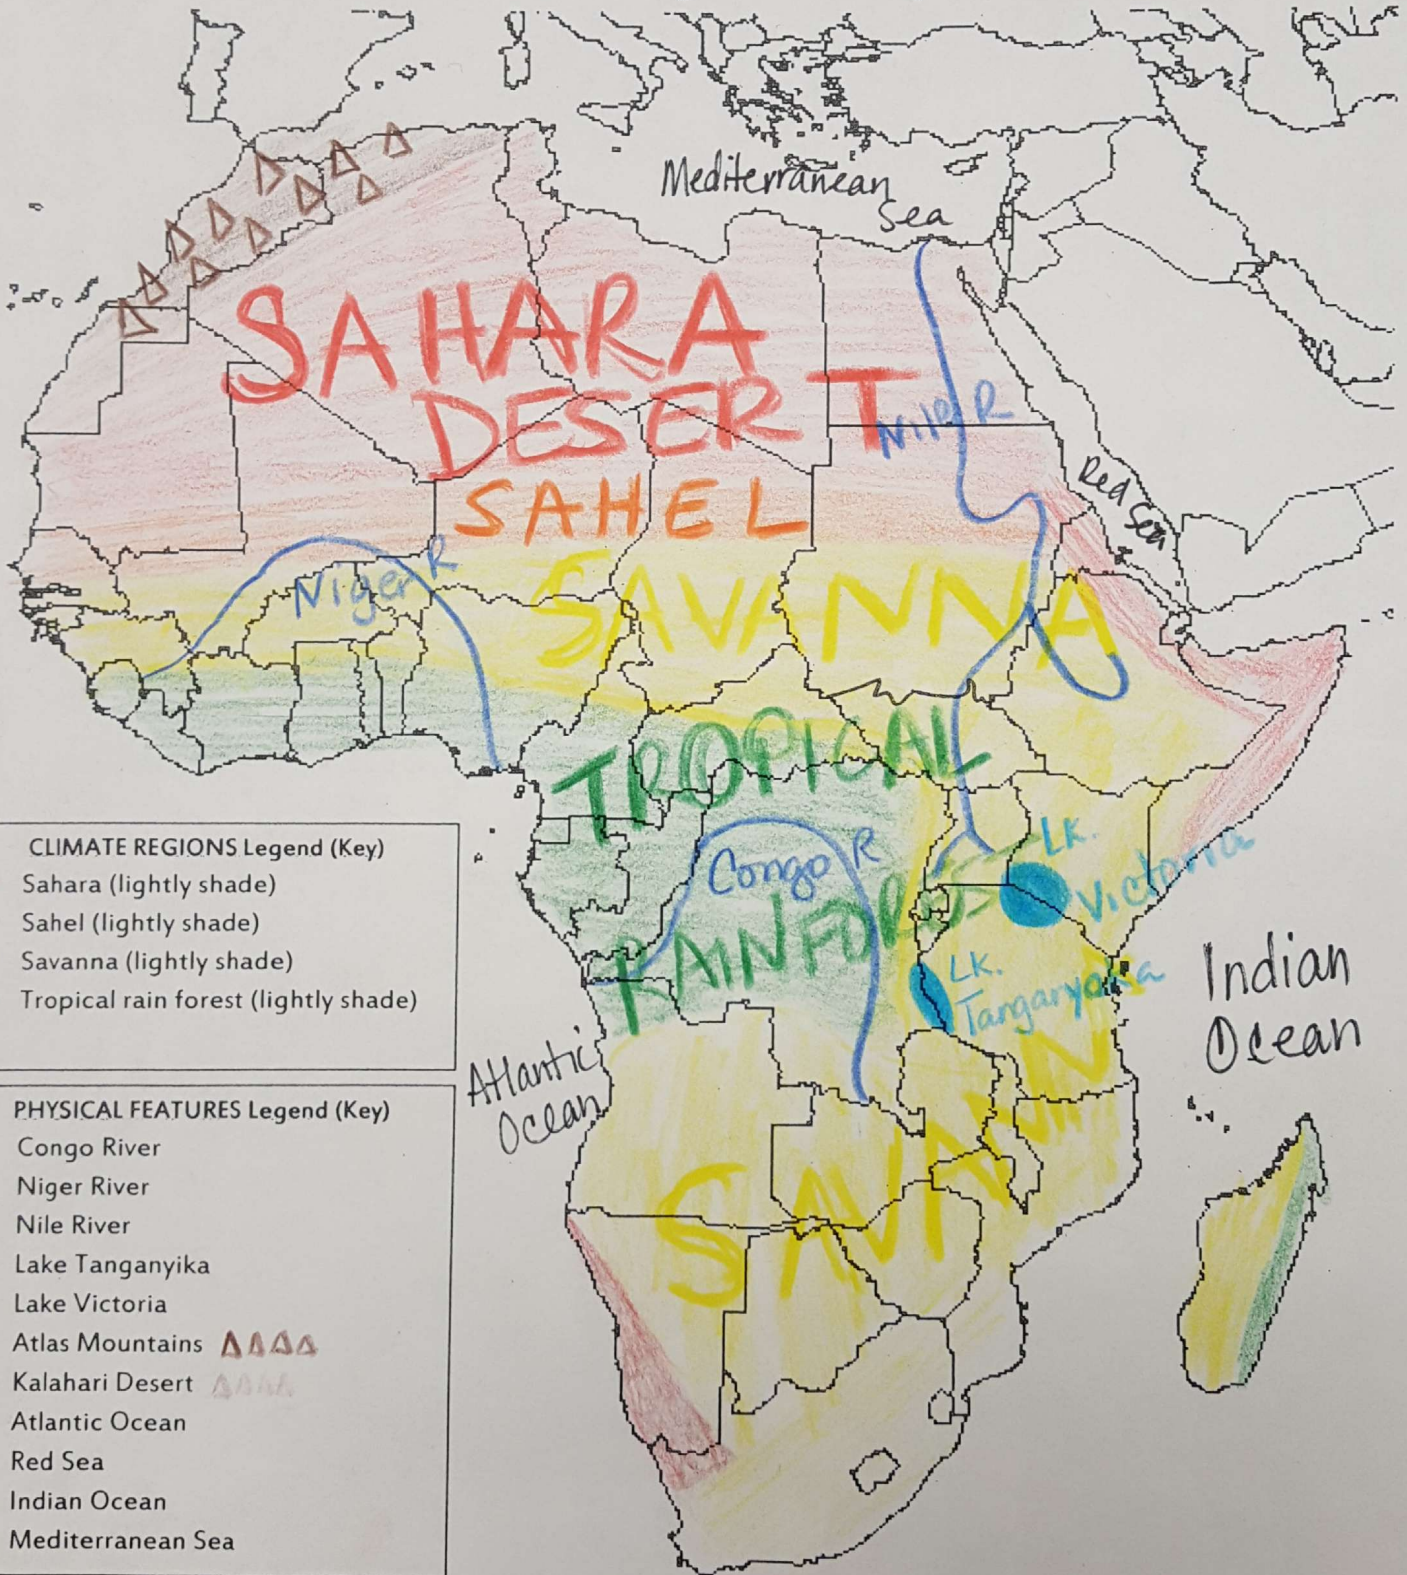 Mediterranean
Sea
SAHARA
DESERT
Nile R
Red Sea
SAHEL
Niger R
SAVANNA
TROPICAL
RAINFOREST
Congo R
Lk.
Victoria
Lk.
Tangaryoka
Indian
Ocean
Atlantic
Ocean
SAVANN
CLIMATE REGIONS Legend (Key)
Sahara (lightly shade)
Sahel (lightly shade)
Savanna (lightly shade)
Tropical rain forest (lightly shade)
PHYSICAL FEATURES Legend (Key)
Congo River
Niger River
Nile River
Lake Tanganyika
Lake Victoria
Atlas Mountains
Kalahari Desert
Atlantic Ocean
Red Sea
Indian Ocean
Mediterranean Sea